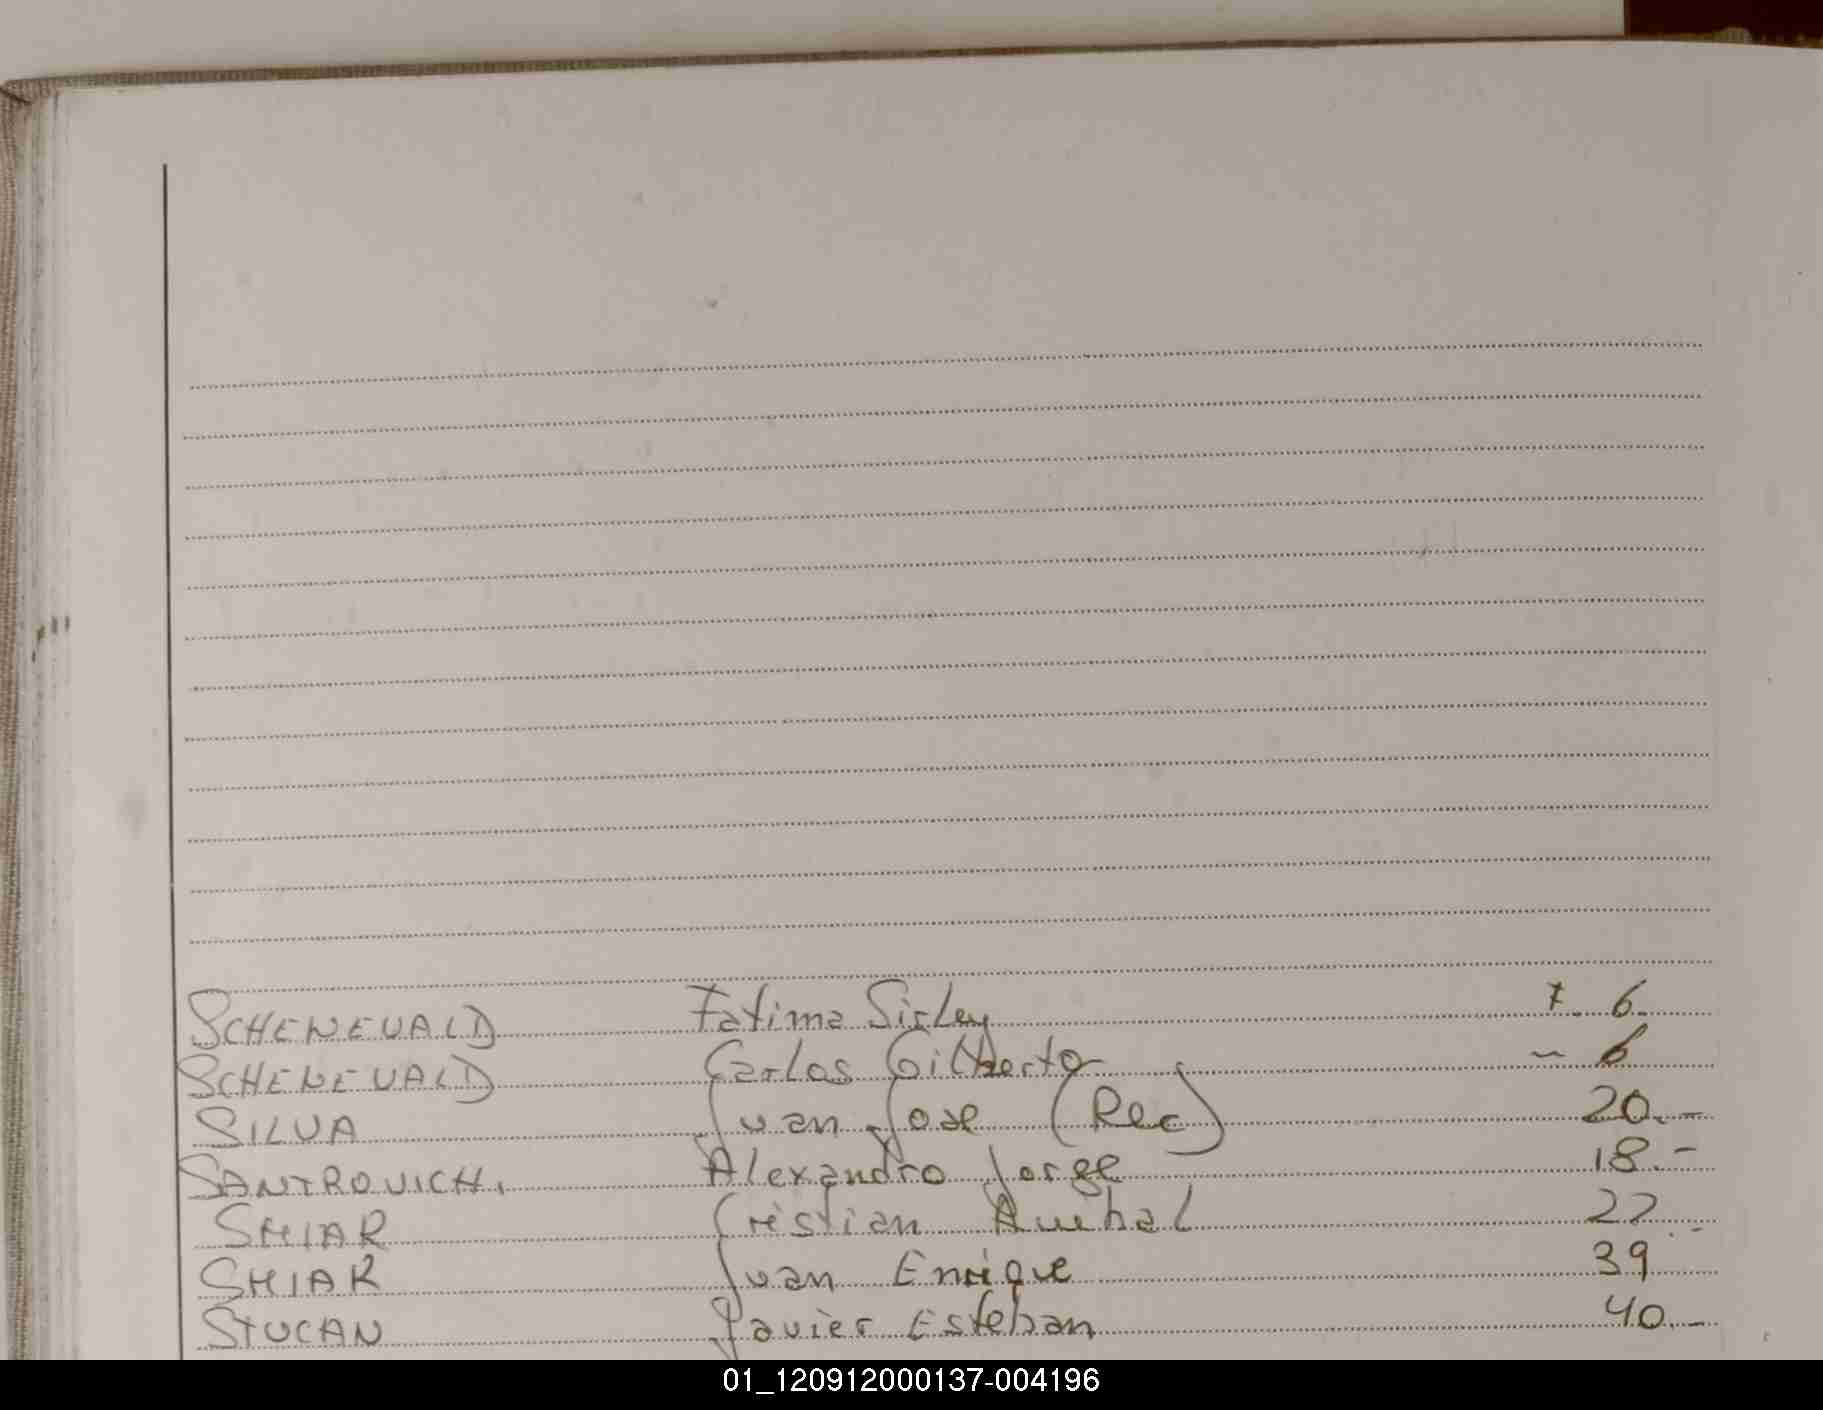 SCHENEVALD Fatima Sirley 7. 6.
SCHENEVALD Carlos Gilberto – 6
SILVA Juan Jose (Rec) 20.-
SANTROVICH. Alexandro Jorge 18.-
SMIAR Cristian Anibal 22.-
SMIAR Juan Enrique 39
STUCAN Javier Esteban 40.-
01_120912000137-004196